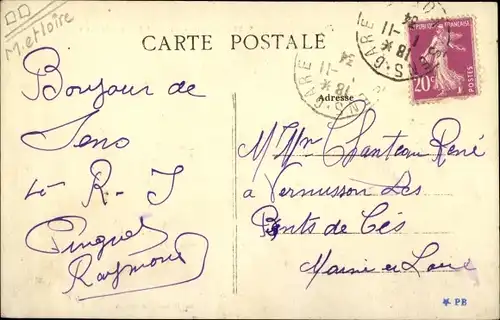 M. et Loire
CARTE POSTALE
Adresse
Bonjour de
Sens
4e R. I
Pinguet
Raymond
M. Mme Chanteau René
a Vernusson Les
Ponts de Cés
Maine et Loire
S-GARE
18 *
11
34
GARE
18 *
11
34
FRANÇAISE
20c
POSTES
* PB